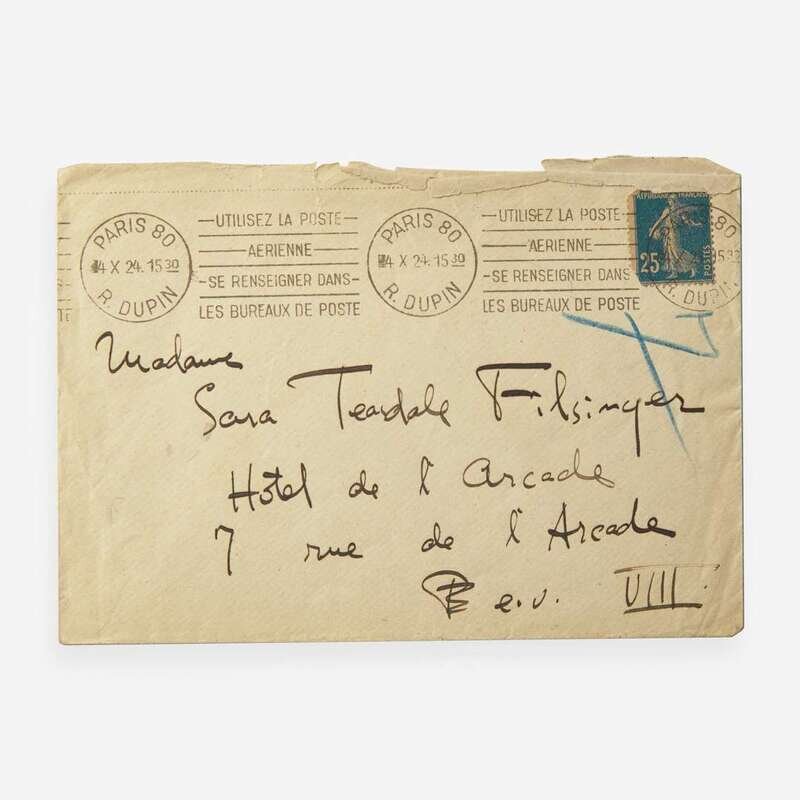 PARIS 80
4 X 24. 15 30
R. DUPIN
UTILISEZ LA POSTE
AERIENNE
SE RENSEIGNER DANS
LES BUREAUX DE POSTE
PARIS 80
4 X 24. 15 30
R. DUPIN
UTILISEZ LA POSTE
AERIENNE
SE RENSEIGNER DANS
LES BUREAUX DE POSTE
REPUBLIQUE FRANÇAISE
25
POSTES
80
15 30
R. DUPIN
Madame
Sara Teasdale Filsinger
Hôtel de l'Arcade
7 rue de l'Arcade
e.v. VIII